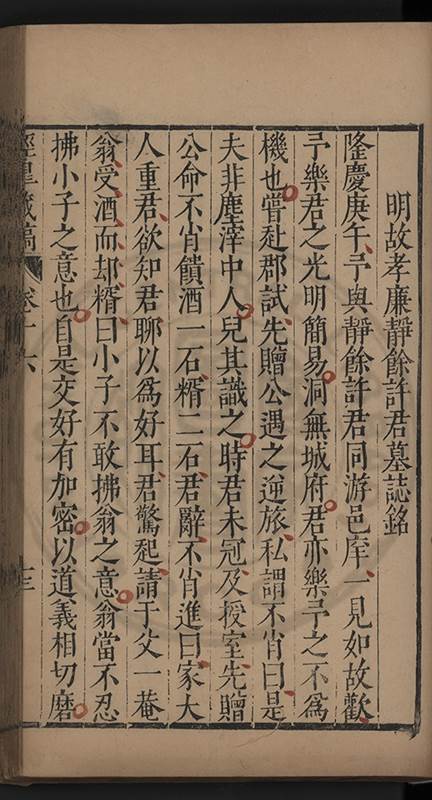 明故孝廉靜餘許君墓誌銘
隆慶庚午予與靜餘許君同游邑庠一見如故歡
予樂君之光明簡易洞無城府君亦樂予之不爲
機也嘗赴郡試先贈公遇之逆旅私謂不肖曰是
夫非塵滓中人兒其識之時君未冠及授室先贈
公命不肖饋酒一石糈二石君辭不肖進曰家大
人重君欲知君聊以爲好耳君驚起請于父一菴
翁受酒而却糈曰小子不敢拂翁之意翁當不忍
拂小子之意也自是交好有加密以道義相切磨
涇臯藏稿
卷十六
十三